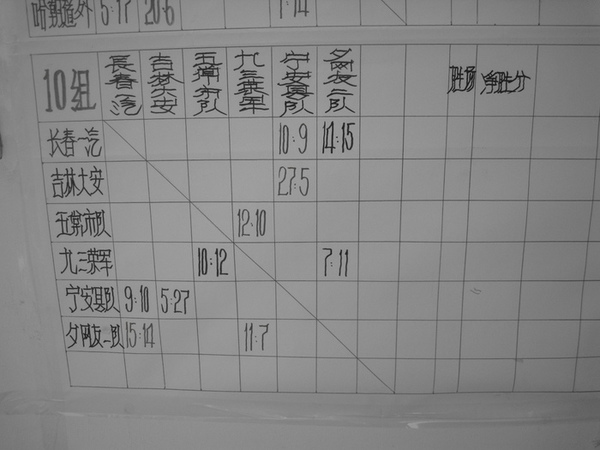 哈朝道外 5:17 20:6 7:14
10组 長春汽 吉林大安 五常市队 九三荣军 宁安县队 夕网友二队 胜场 净胜分
长春一汽 10:9 14:15
吉林大安 27:5
五常市队 12:10
九三荣军 10:12 7:11
宁安县队 9:10 5:27
夕网友二队 15:14 11:7